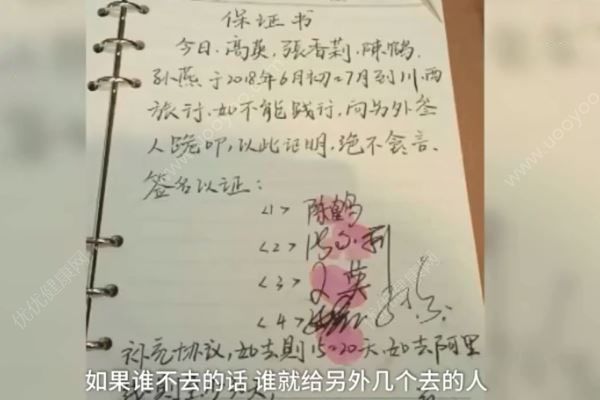 保证书
今日.高英,张香莉,陈鹤,
孙燕于2018年6月初~7月到川西
旅行.如不能践行,向另外叁
人跪叩,以此证明,绝不食言.
签名以证:
<1> 陈鹤
<2>
<3> 英
<4>
补充协议,如去则15~20天,如去阿里
如果谁不去的话 谁就给另外几个去的人
优优健康网
www.uoyoo